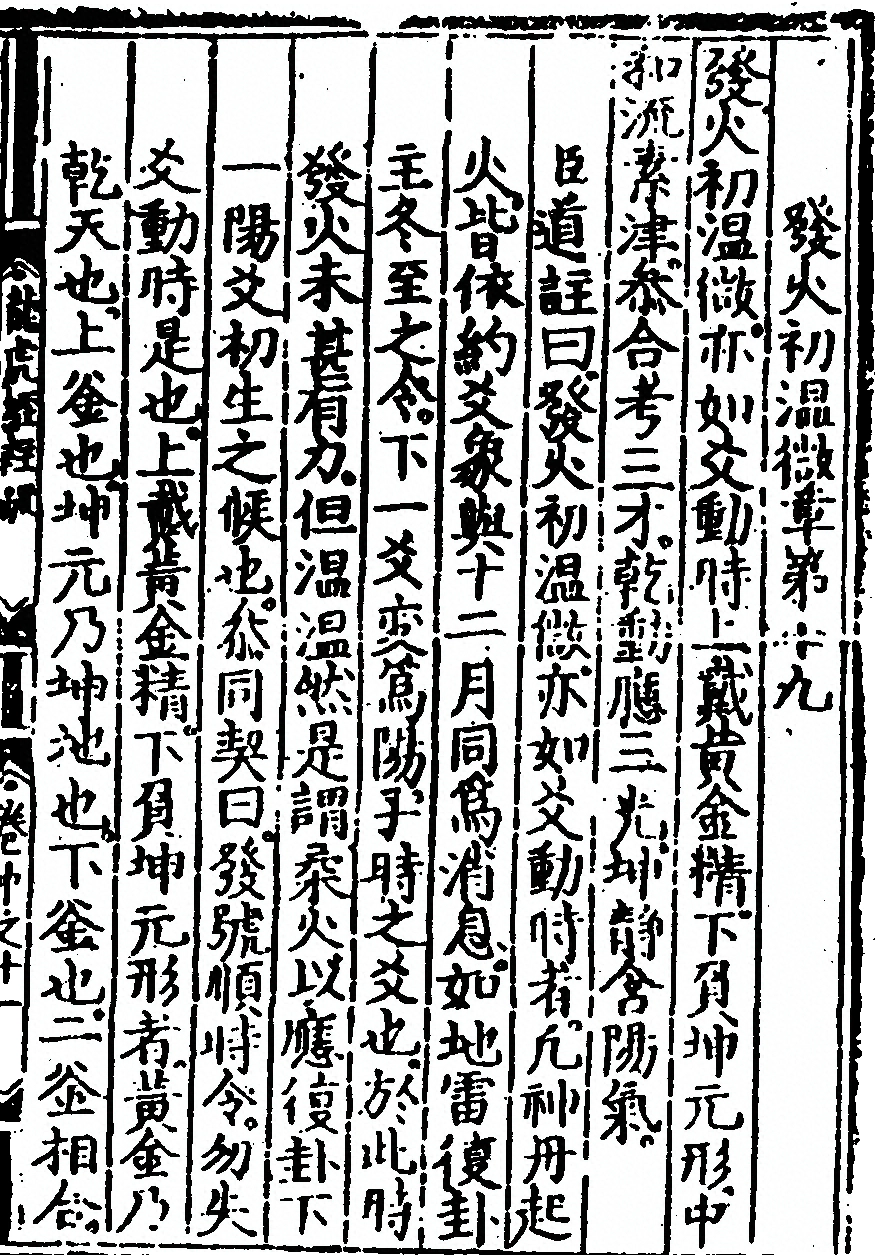 發火初温微章第十九
發火初温微亦如爻動時上戴黄金精下負坤元形中
和流素津叅合考三才乾動應三光坤静含陽氣
臣道註曰發火初温微亦如爻動時者凡神丹起
火皆依約爻象與十二月同爲消息如地雷復卦
主冬至之令下一爻变爲陽子時之爻也於此時
發火未甚有力但温温然是謂柔火以應復卦下
一陽爻初生之候也叅同契曰發號順時令勿失
爻動時是也上戴黄金精下負坤元形者黄金乃
乾天也上釜也坤元乃坤池也下釜也二釜相合
龍虎經註䟽
卷中之十一